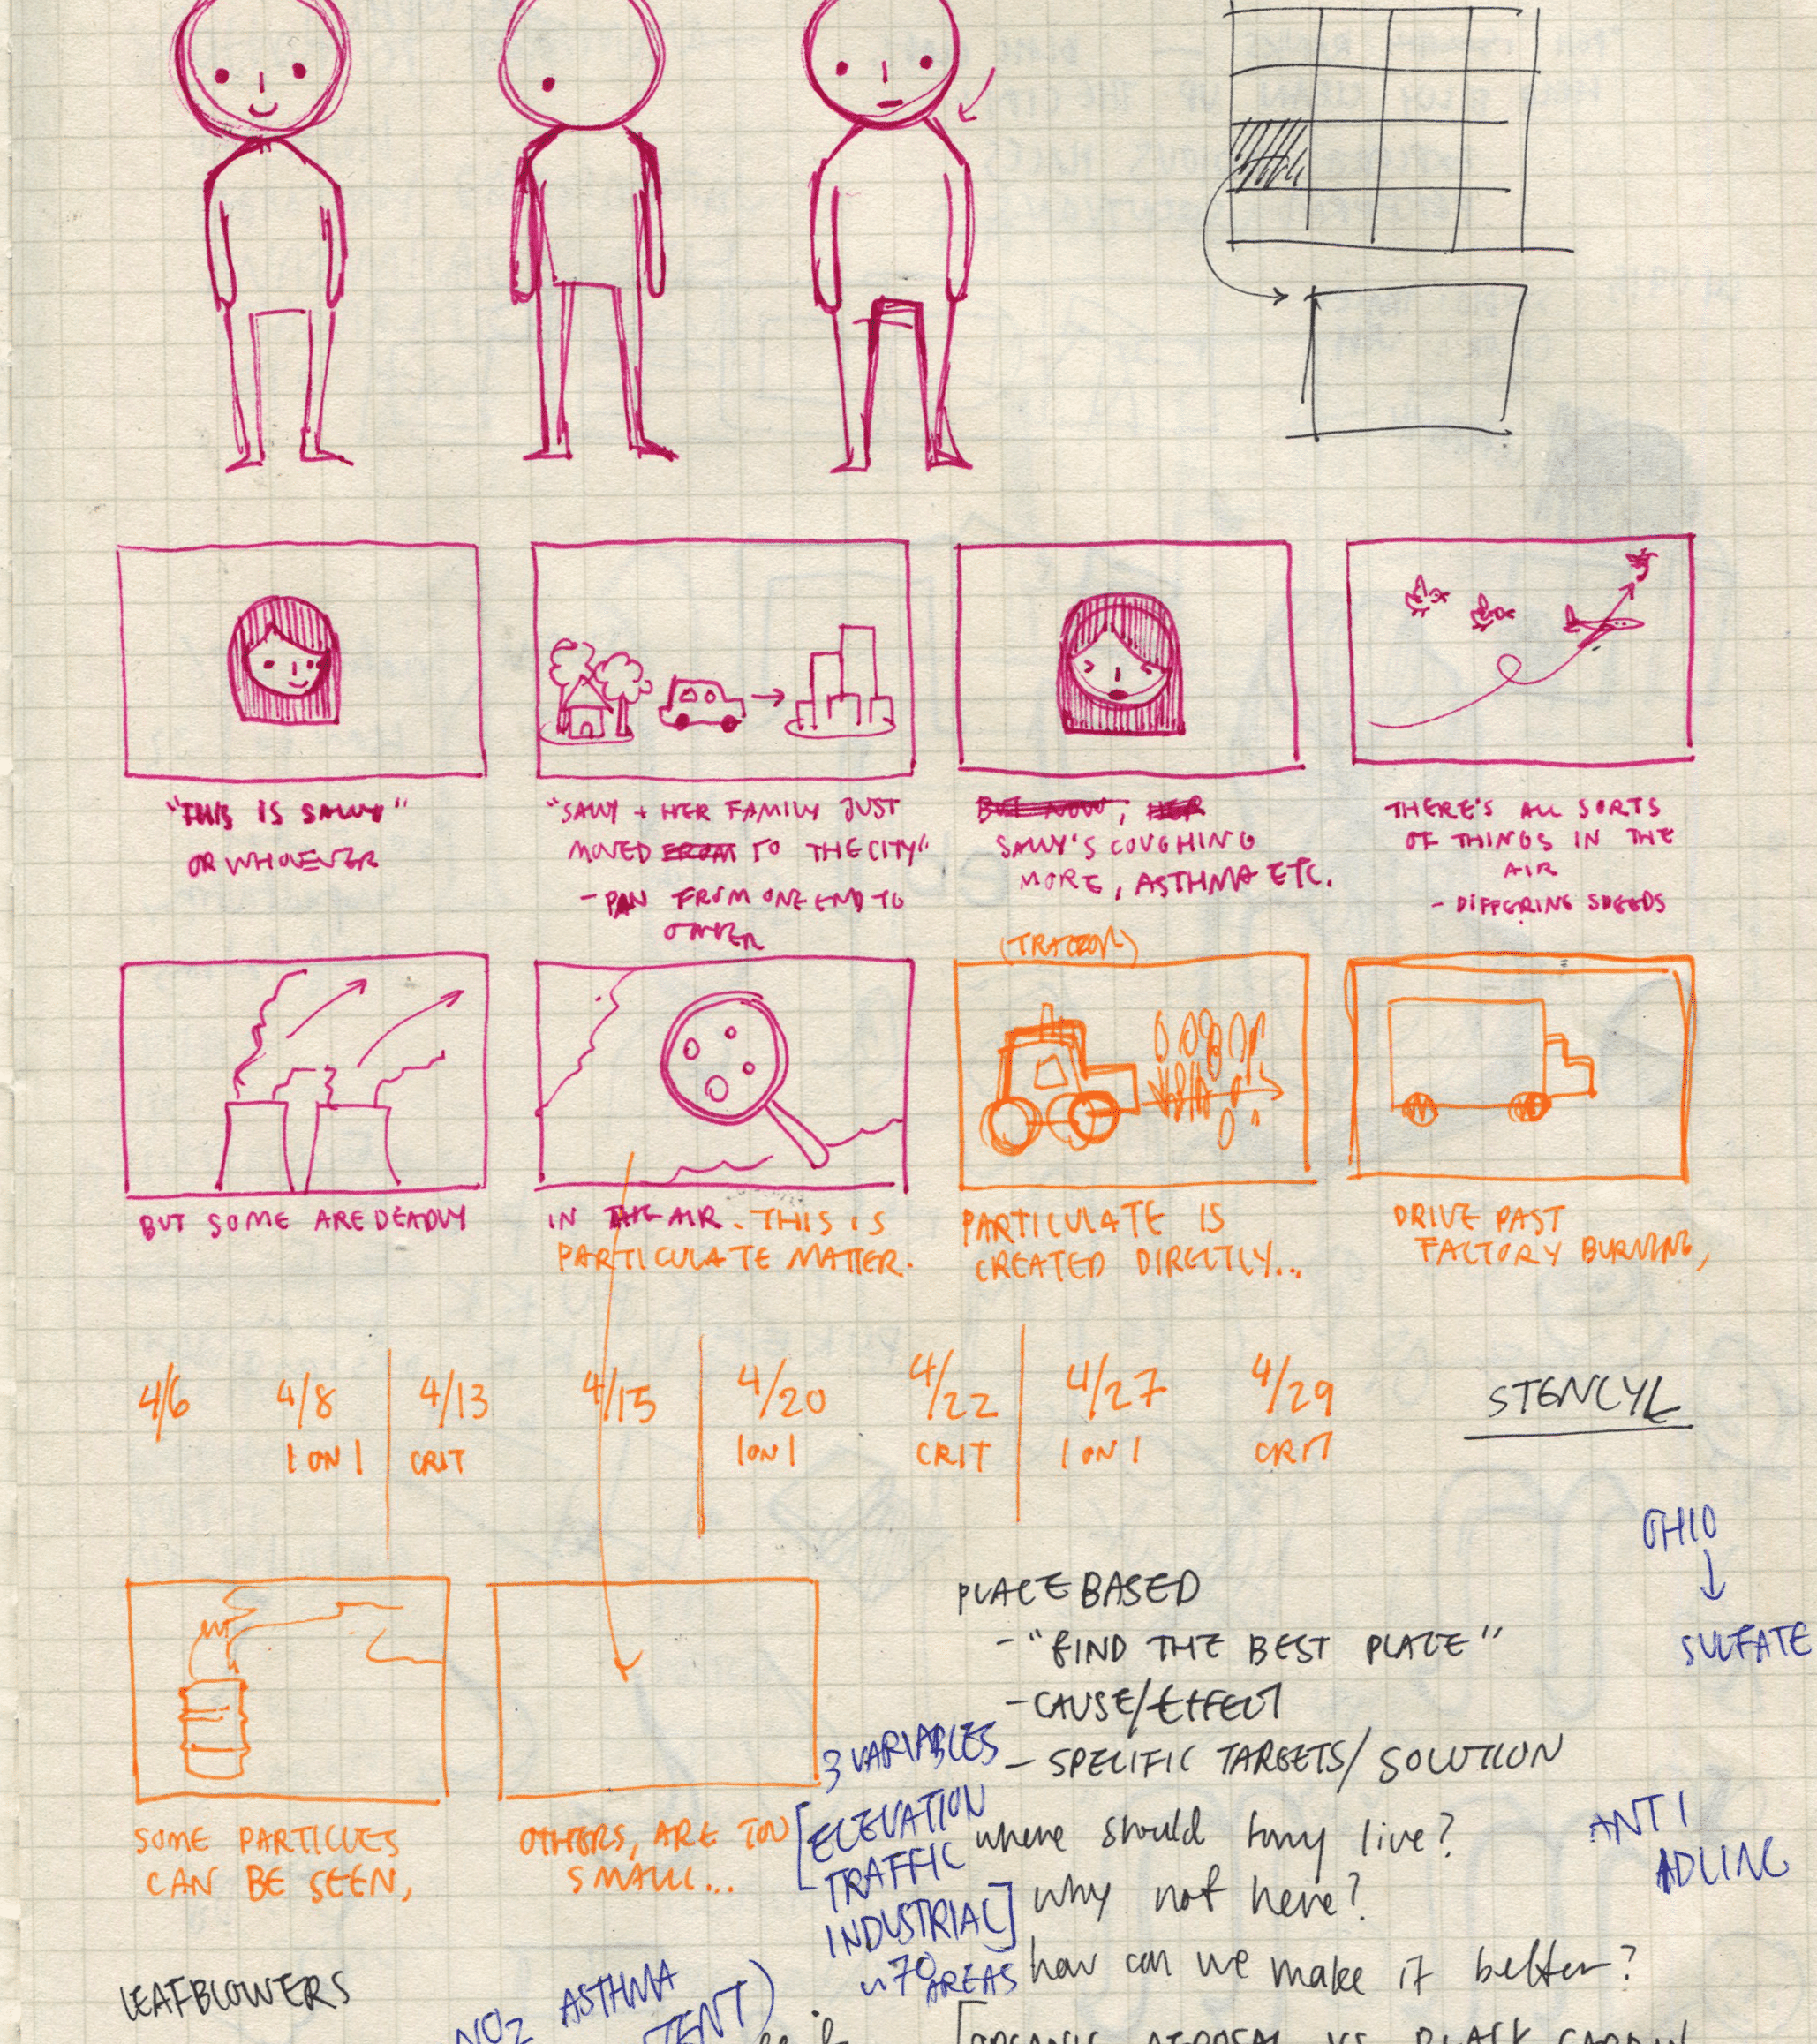 "THIS IS SALLY"
OR WHOEVER
"SALLY + HER FAMILY JUST
MOVED FROM TO THE CITY"
- PAN FROM ONE END TO
OTHER
BUT NOW, HER
SALLY'S COUGHING
MORE, ASTHMA ETC.
THERE'S ALL SORTS
OF THINGS IN THE
AIR
- DIFFERING SPEEDS
(TRACTOR)
BUT SOME ARE DEADLY
IN THE AIR. THIS IS
PARTICULATE MATTER.
PARTICULATE IS
CREATED DIRECTLY...
DRIVE PAST
FACTORY BURNING,
4/6
4/8
1 ON 1
4/13
CRIT
4/15
4/20
1 ON 1
4/22
CRIT
4/27
1 ON 1
4/29
CRIT
STENCYL
OHIO
SULFATE
PLACE BASED
- "FIND THE BEST PLACE"
- CAUSE/EFFECT
- SPECIFIC TARGETS/SOLUTION
3 VARIABLES
[ELEVATION
TRAFFIC
INDUSTRIAL]
AREAS
where should tony live?
why not here?
how can we make it better?
ANTI
IDLING
SOME PARTICLES
CAN BE SEEN,
OTHERS, ARE TOO
SMALL...
LEAFBLOWERS
NO2 ASTHMA
VS BLACK CARBON